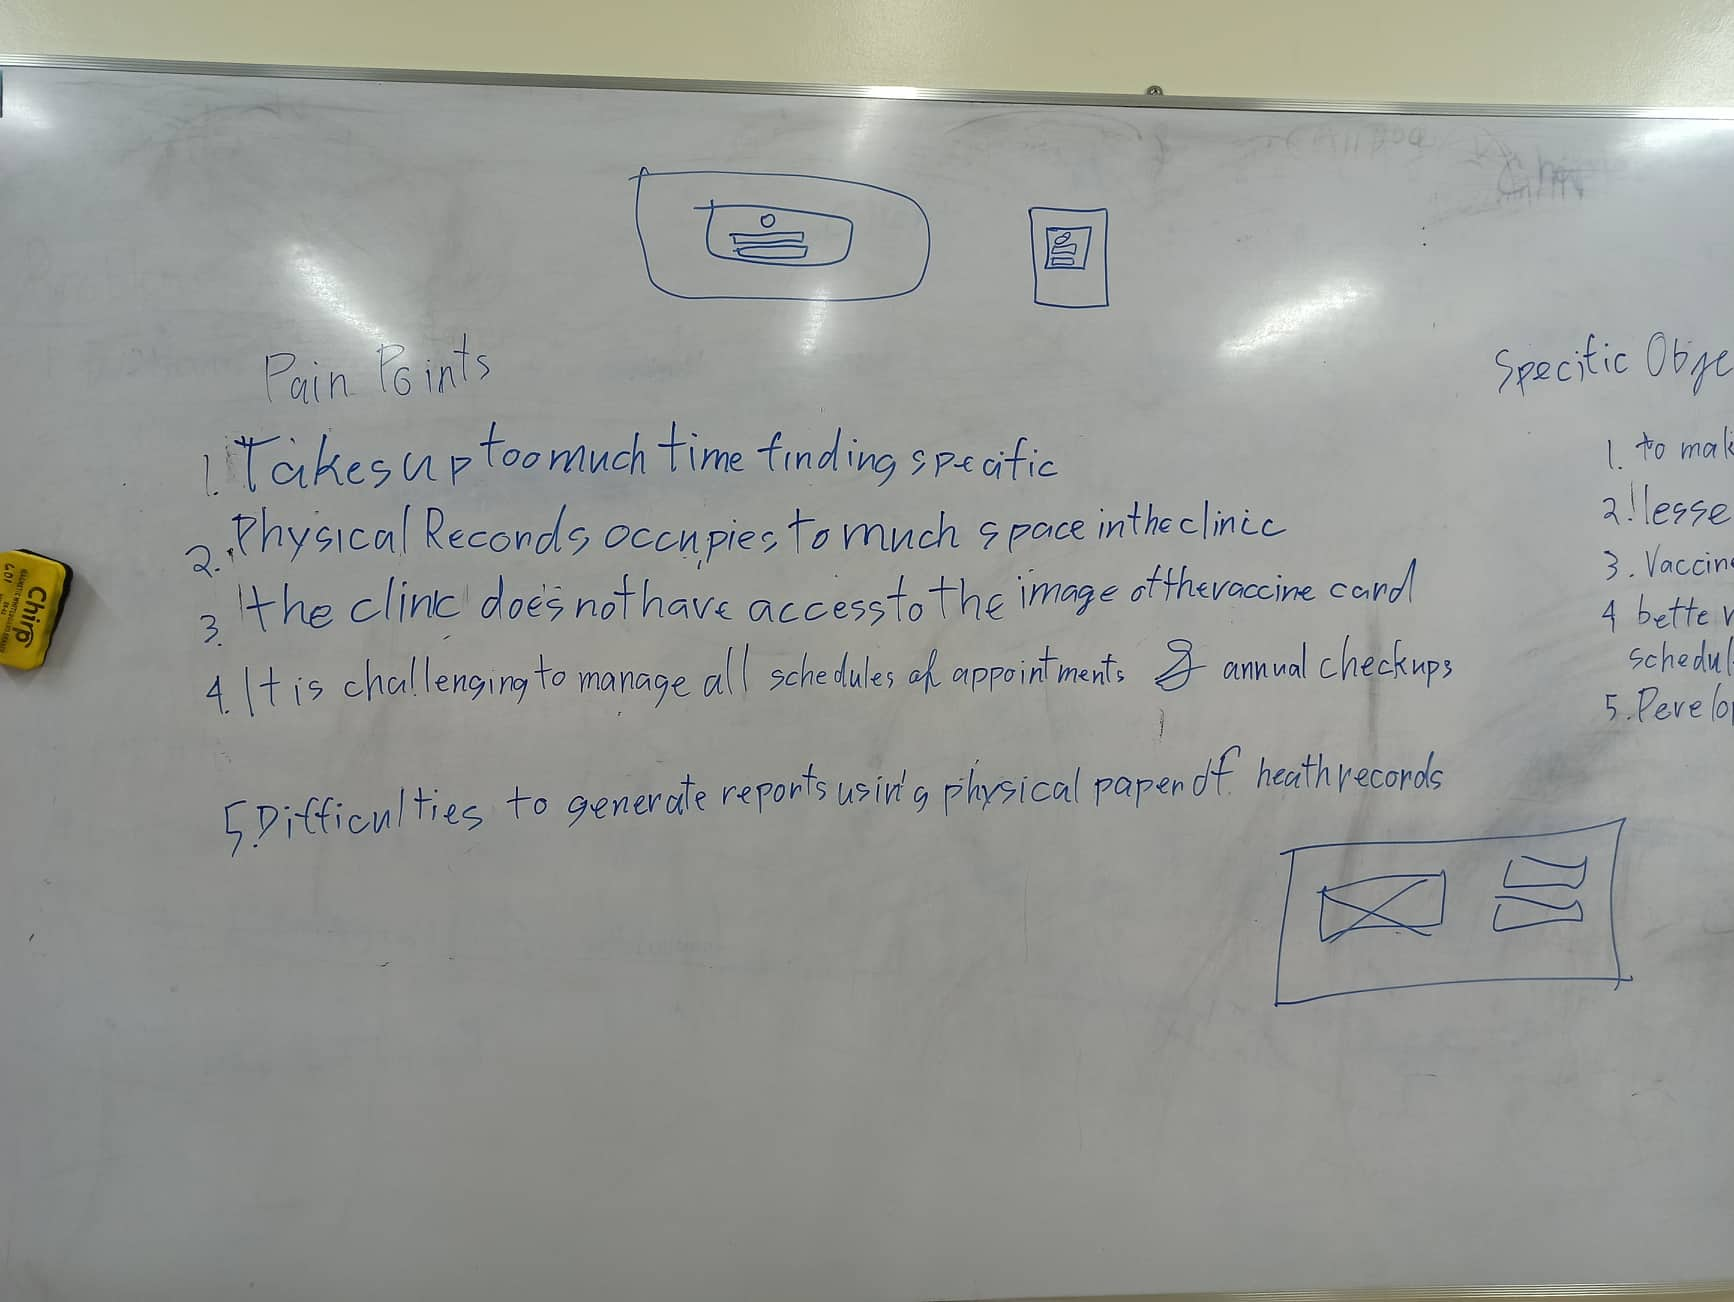 Pain Points
1. Takes up too much time finding specific
2. Physical Records occupies to much space in the clinic
3. the clinic does not have access to the image of the vaccine card
4. It is challenging to manage all schedules of appointments & annual checkups
5. Difficulties to generate reports using physical paper of heath records
Specific Obje
1. to mak
2. lesse
3. Vaccin
4 bette
schedul
5. Develo
Chirp